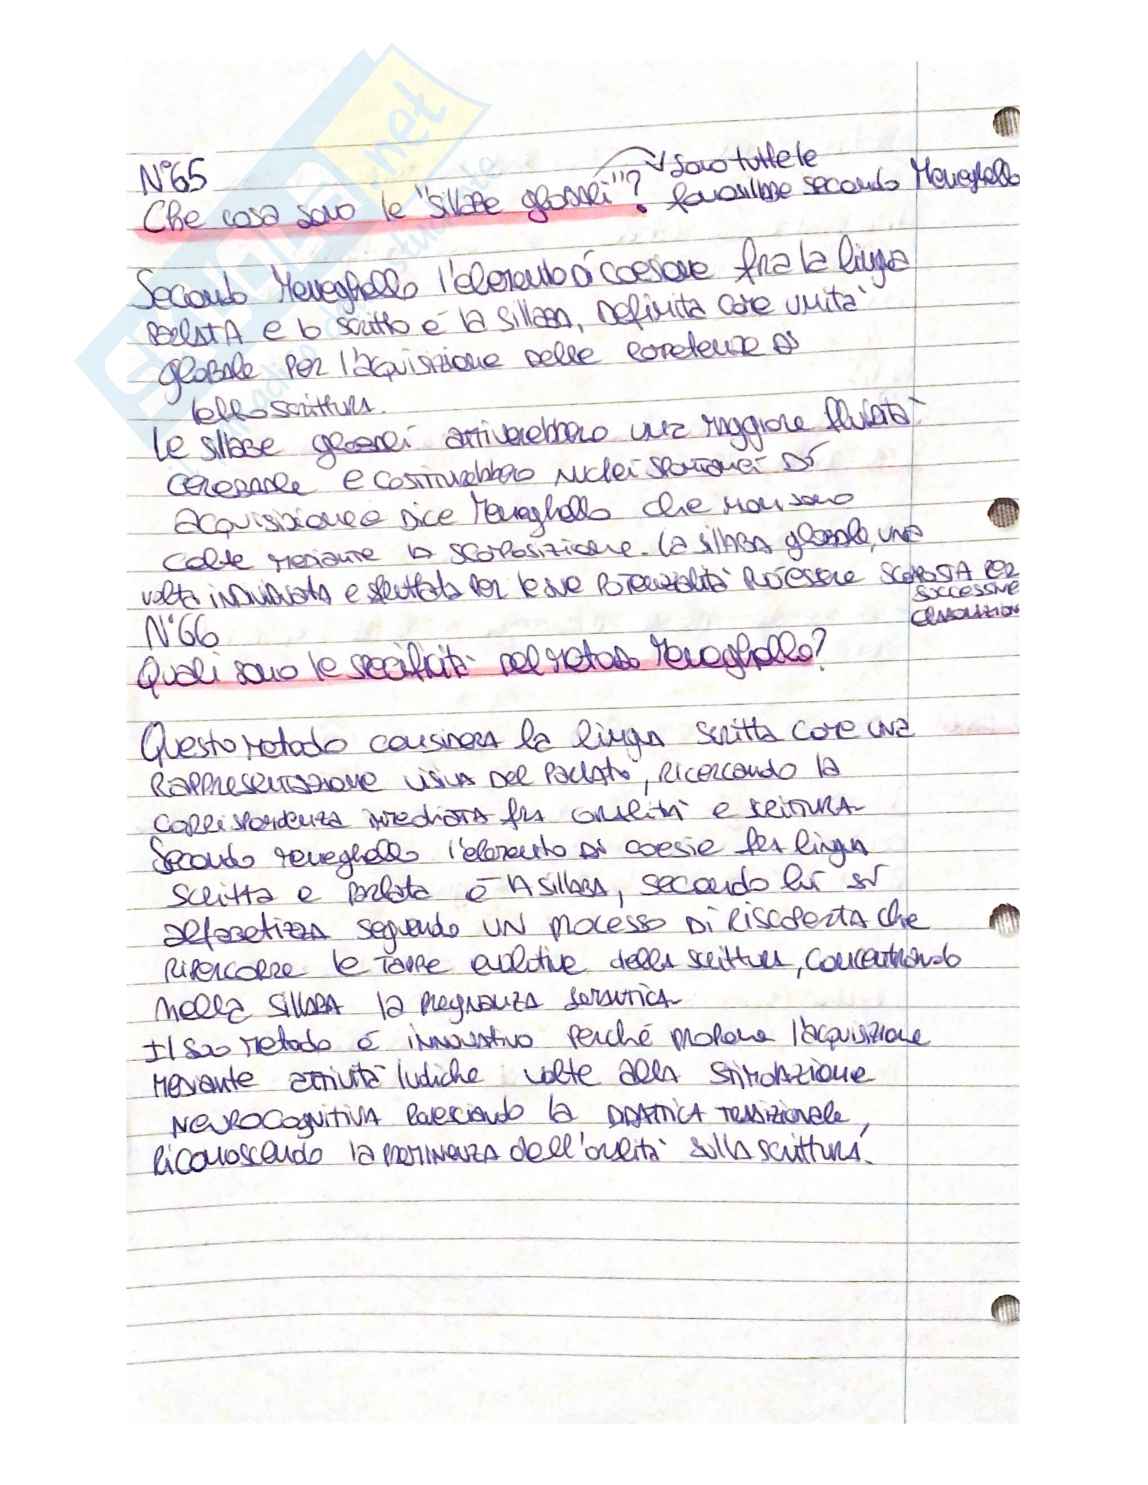 N°65
Che cosa sono le "sillabe globali"? → sono tutte le
fonosillabe secondo Meneghello
Secondo Meneghello l'elemento di coesione fra la lingua
parlata e lo scritto è la sillaba, definita come unità
globale per l'acquisizione delle competenze di
lettoscrittura.
Le sillabe globali attiverebbero una maggiore fluidità
cerebrale e costituirebbero nuclei spontanei di
acquisizione e dice Meneghello che non sono
colte mediante la scomposizione. La sillaba globale, una
volta individuata e sfruttata per le sue potenzialità può essere scomposta per
successive
N°66
Quali sono le specificità del metodo Meneghello?
Questo metodo considera la lingua scritta come una
rappresentazione visiva del parlato, ricercando la
corrispondenza immediata fra oralità e scrittura
Secondo Meneghello l'elemento di coesie fra lingua
scritta e parlata è la sillaba, secondo lui si
alfabetizza seguendo un processo di riscoperta che
ripercorre le tappe evolutive della scrittura, concentrando
nella sillaba la pregnanza semantica
Il suo metodo è innovativo perché propone l'acquisizione
mediante attività ludiche volte alla stimolazione
neurocognitiva rovesciando la didattica tradizionale,
riconoscendo la preminenza dell'oralità sulla scrittura.